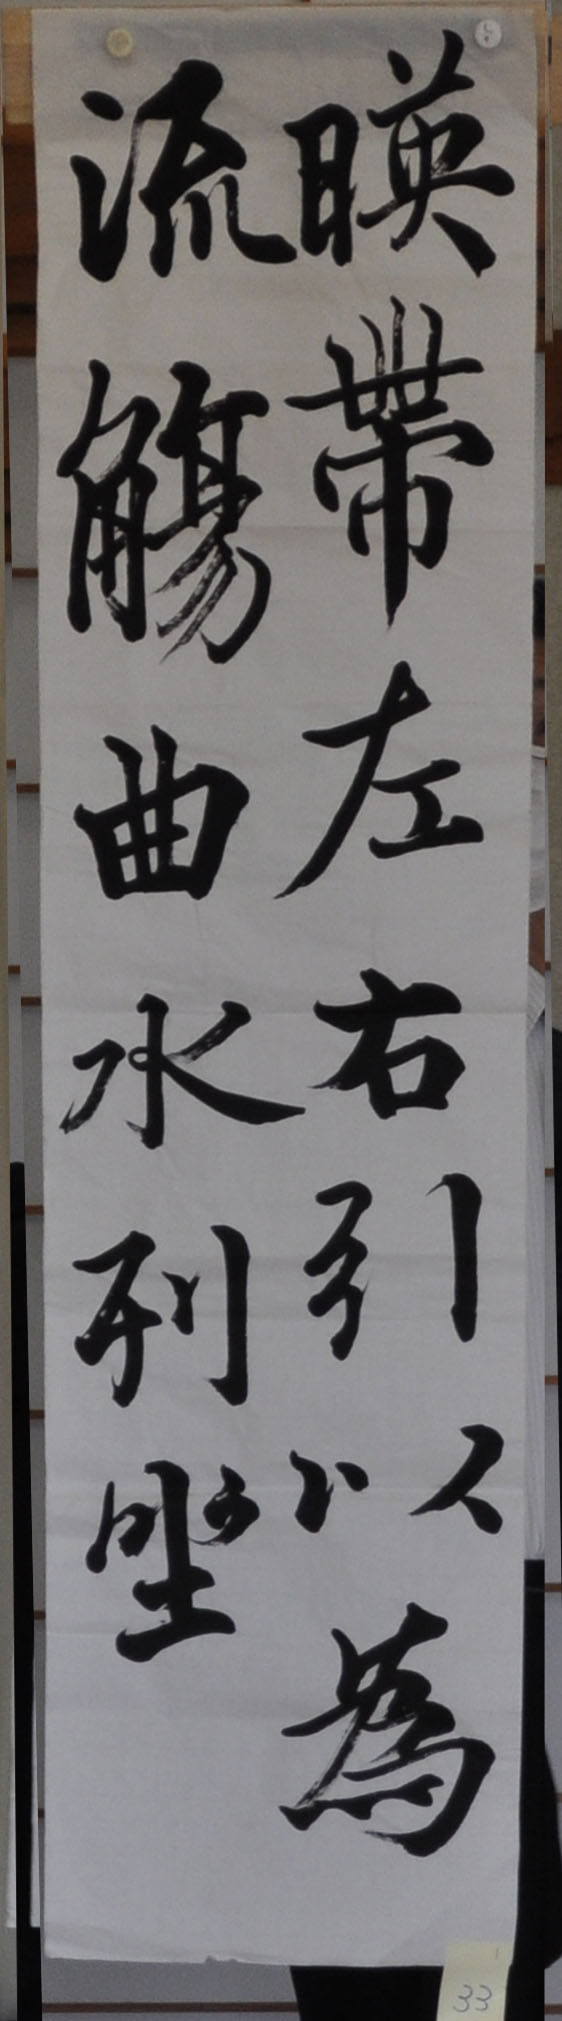 暎帶左右引以為
流觴曲水列坐
33